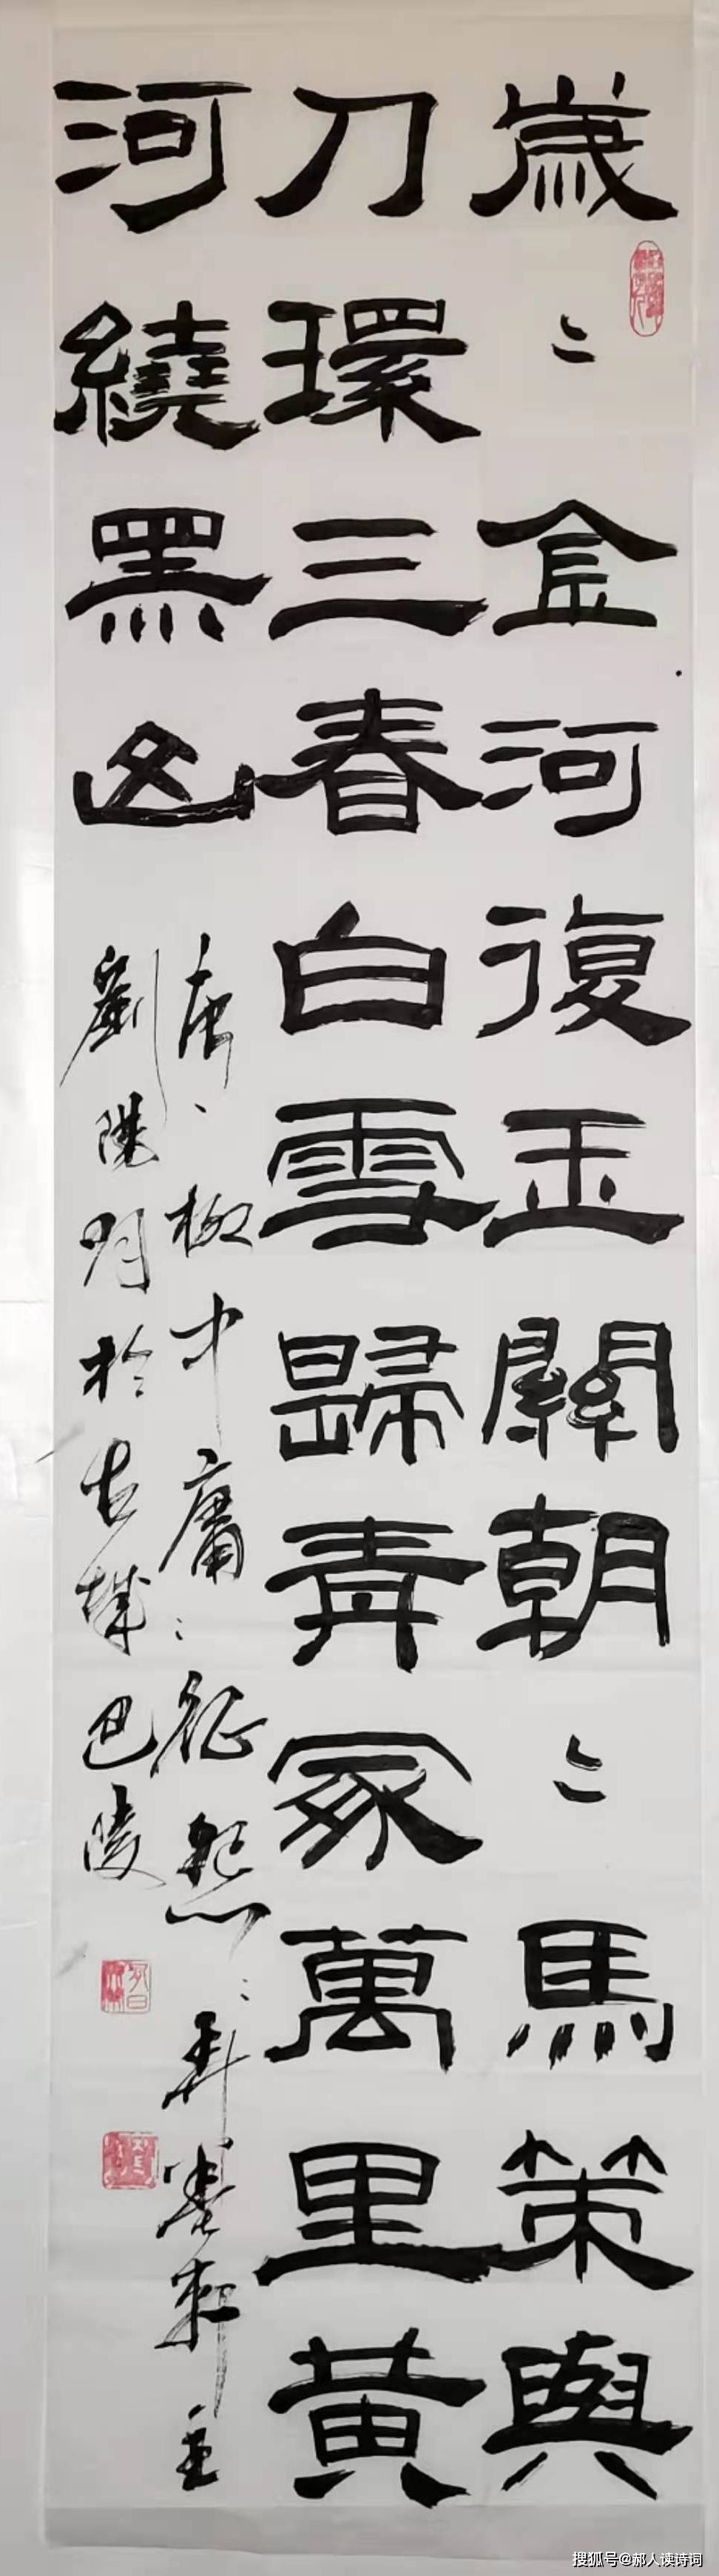 歲〻金河復玉關朝〻馬策與
刀環三春白雪歸青冢萬里黃
河繞黑山
唐、柳中庸、征怨、
主
劉 明於古城巴陵
搜狐号@郝人读诗词